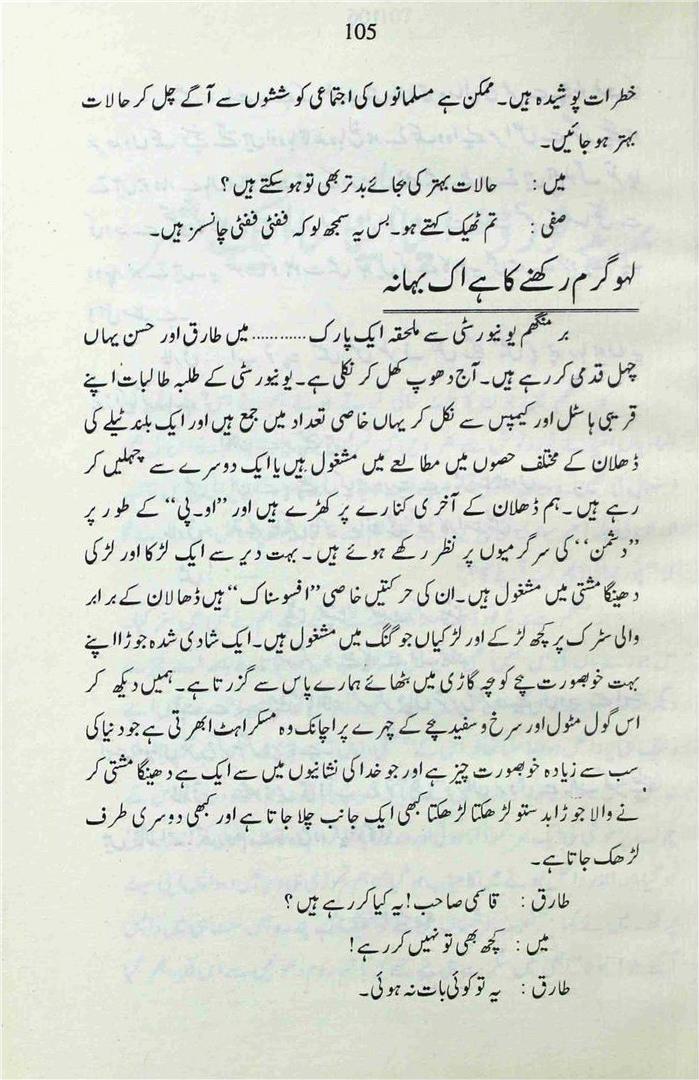 105
خطرات پوشیدہ ہیں۔ ممکن ہے مسلمانوں کی اجتماعی کوششوں سے آگے چل کر حالات
بہتر ہو جائیں۔
میں : حالات بہتر کی بجائے بدتر بھی تو ہو سکتے ہیں؟
صفی : تم ٹھیک کہتے ہو۔ بس یہ سمجھ لو کہ ففٹی ففٹی چانسز ہیں۔
لہو گرم رکھنے کا ہے اک بہانہ
برمنگھم یونیورسٹی سے ملحقہ ایک پارک ........... میں طارق اور حسن یہاں
چہل قدمی کر رہے ہیں۔ آج دھوپ کھل کر نکلی ہے۔ یونیورسٹی کے طلبہ طالبات اپنے
قریبی ہاسٹل اور کیمپس سے نکل کر یہاں خاصی تعداد میں جمع ہیں اور ایک بلند ٹیلے کی
ڈھلان کے مختلف حصوں میں مطالعے میں مشغول ہیں یا ایک دوسرے سے چہلیں کر
رہے ہیں۔ ہم ڈھلان کے آخری کنارے پر کھڑے ہیں اور ”او۔پی“ کے طور پر
”دشمن“ کی سرگرمیوں پر نظر رکھے ہوئے ہیں۔ بہت دیر سے ایک لڑکا اور لڑکی
دھینگا مشتی میں مشغول ہیں۔ ان کی حرکتیں خاصی ”افسوسناک“ ہیں ڈھالان کے برابر
والی سڑک پر کچھ لڑکے اور لڑکیاں جوگنگ میں مشغول ہیں۔ ایک شادی شدہ جوڑا اپنے
بہت خوبصورت بچے کو بچہ گاڑی میں بٹھائے ہمارے پاس سے گزرتا ہے۔ ہمیں دیکھ کر
اس گول مٹول اور سرخ و سفید بچے کے چہرے پر اچانک وہ مسکراہٹ ابھرتی ہے جو دنیا کی
سب سے زیادہ خوبصورت چیز ہے اور جو خدا کی نشانیوں میں سے ایک ہے دھینگا مشتی کر
نے والا جوڑا بدستو لڑھکتا لڑھکتا کبھی ایک جانب چلا جاتا ہے اور کبھی دوسری طرف
لڑھک جاتا ہے۔
طارق : قاسمی صاحب! یہ کیا کر رہے ہیں؟
میں : کچھ بھی تو نہیں کر رہے!
طارق : یہ تو کوئی بات نہ ہوئی۔